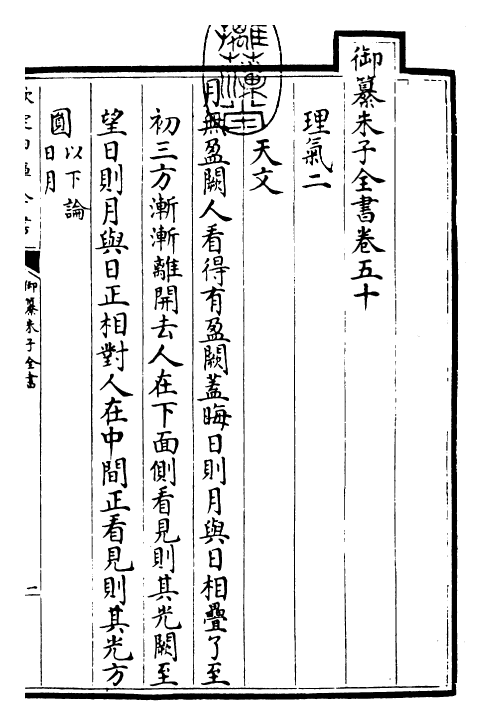 御纂朱子全書卷五十
理氣二
天文
月無盈闕人看得有盈闕蓋晦日則月與日相疊了至
初三方漸漸離開去人在下面側看見則其光闕至
望日則月與日正相對人在中間正看見則其光方
圓以下論
日月
御纂朱子全書